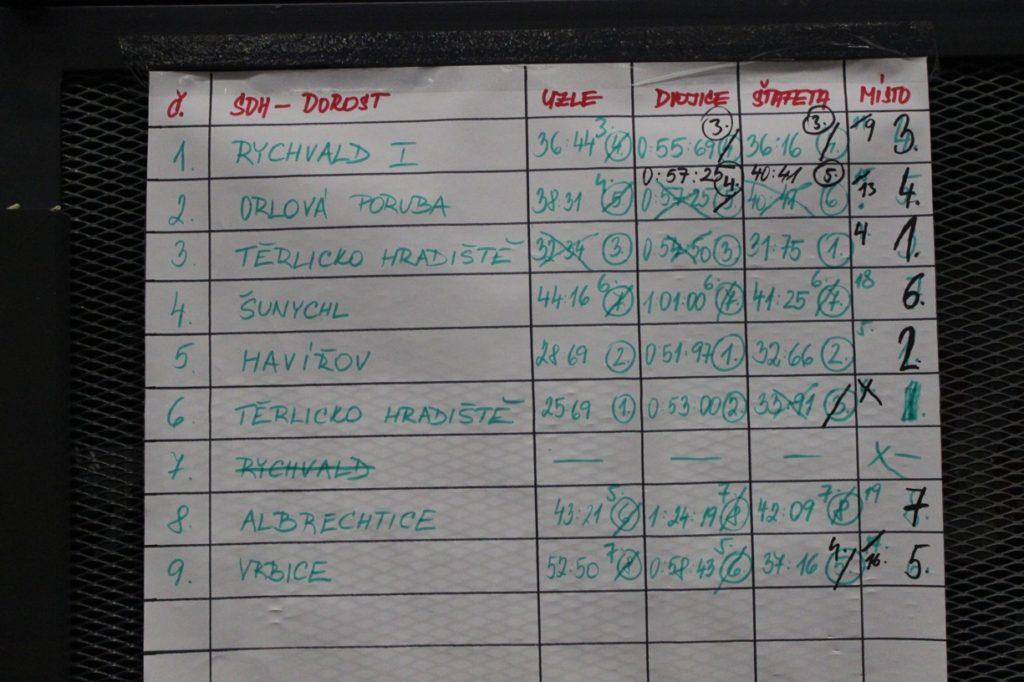 č. SDH - DOROST UZLE DVOJICE ŠTAFETA MÍSTO
1. RYCHVALD I 36:44 3. 0:55:69 3. 36:16 3. 9 3.
2. ORLOVÁ PORUBA 38:31 4. 0:57:25 4. 40:41 5. 13 4.
3. TĚRLICKO HRADIŠTĚ 32:34 3. 31:75 1. 4 1.
4. ŠUNYCHL 44:16 6. 1:01:00 6. 41:25 6. 18 6.
5. HAVÍŘOV 28:69 2. 0:51:97 1. 32:66 2. 5. 2.
6. TĚRLICKO HRADIŠTĚ 25:69 1. 0:53:00 2. X 1.
7. RYCHVALD — — — X —
8. ALBRECHTICE 43:21 5. 1:24:19 7. 8 42:09 7. 8 19 7
9. VRBICE 52:50 7. 8 0:58:43 5. 6 37:16 4. 5 16. 5.